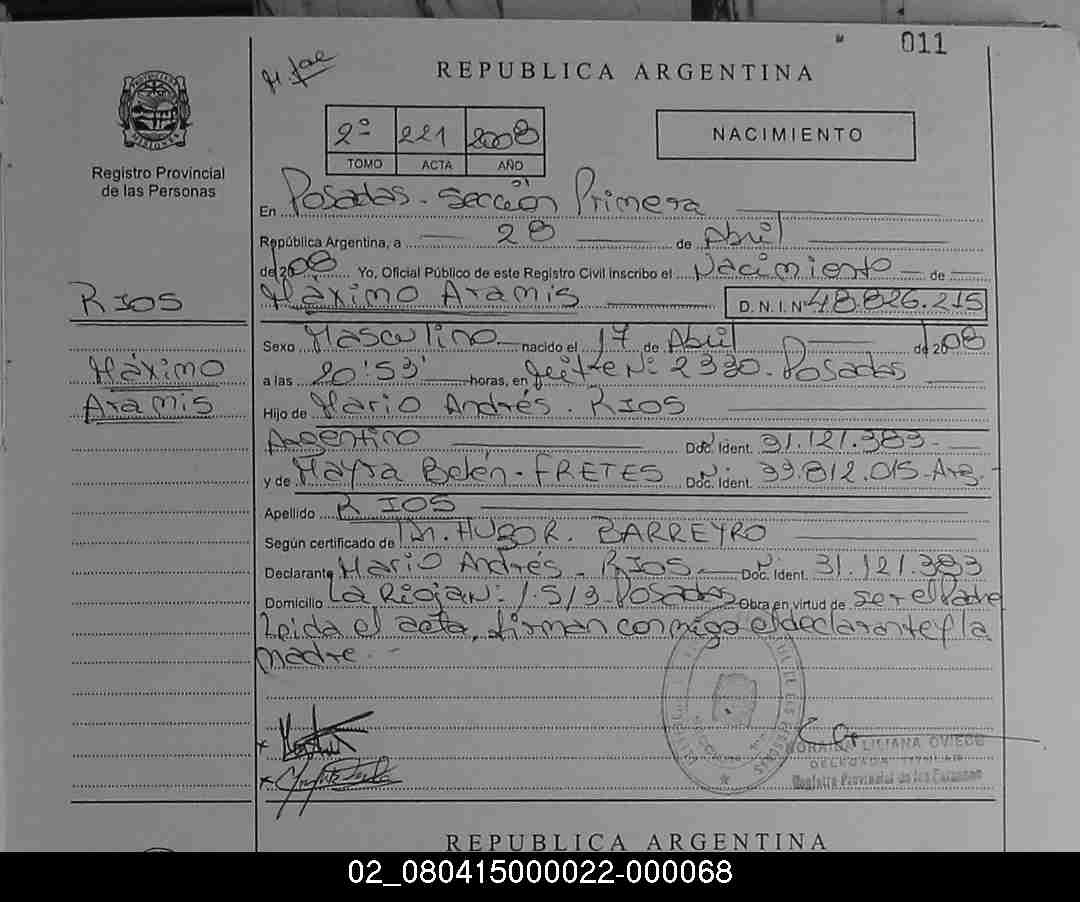 011
REPUBLICA ARGENTINA
2º 221 2008
TOMO ACTA AÑO
NACIMIENTO
Registro Provincial
de las Personas
En Posadas - Sección Primera
República Argentina, a 28 de Abril
de 2008 Yo, Oficial Público de este Registro Civil inscribo el Nacimiento de
Máximo Aramis D.N.I. Nº 48.826.215
RIOS
Máximo
Aramis
Sexo Masculino nacido el 17 de Abril de 2008
a las 20'53' horas, en Mitre Nº 2330. Posadas
Hijo de Mario Andrés. RIOS
Argentino Doc. Ident. 31.121.383
y de Mayra Belén - FRETES Doc. Ident. 39.812.015-Arg.
Apellido RIOS
Según certificado de Dr. HUGO R. BARREYRO
Declarante Mario Andrés - RIOS Doc. Ident. 31.121.383
Domicilio La Rioja Nº: 1513-Posadas Obra en virtud de ser el Padre
Leida el acta, firman conmigo el declarante y la
madre.-
LILIANA OVIEDO
DELEGADA TITULAR
Registro Provincial de las Personas
REPUBLICA ARGENTINA
02_080415000022-000068